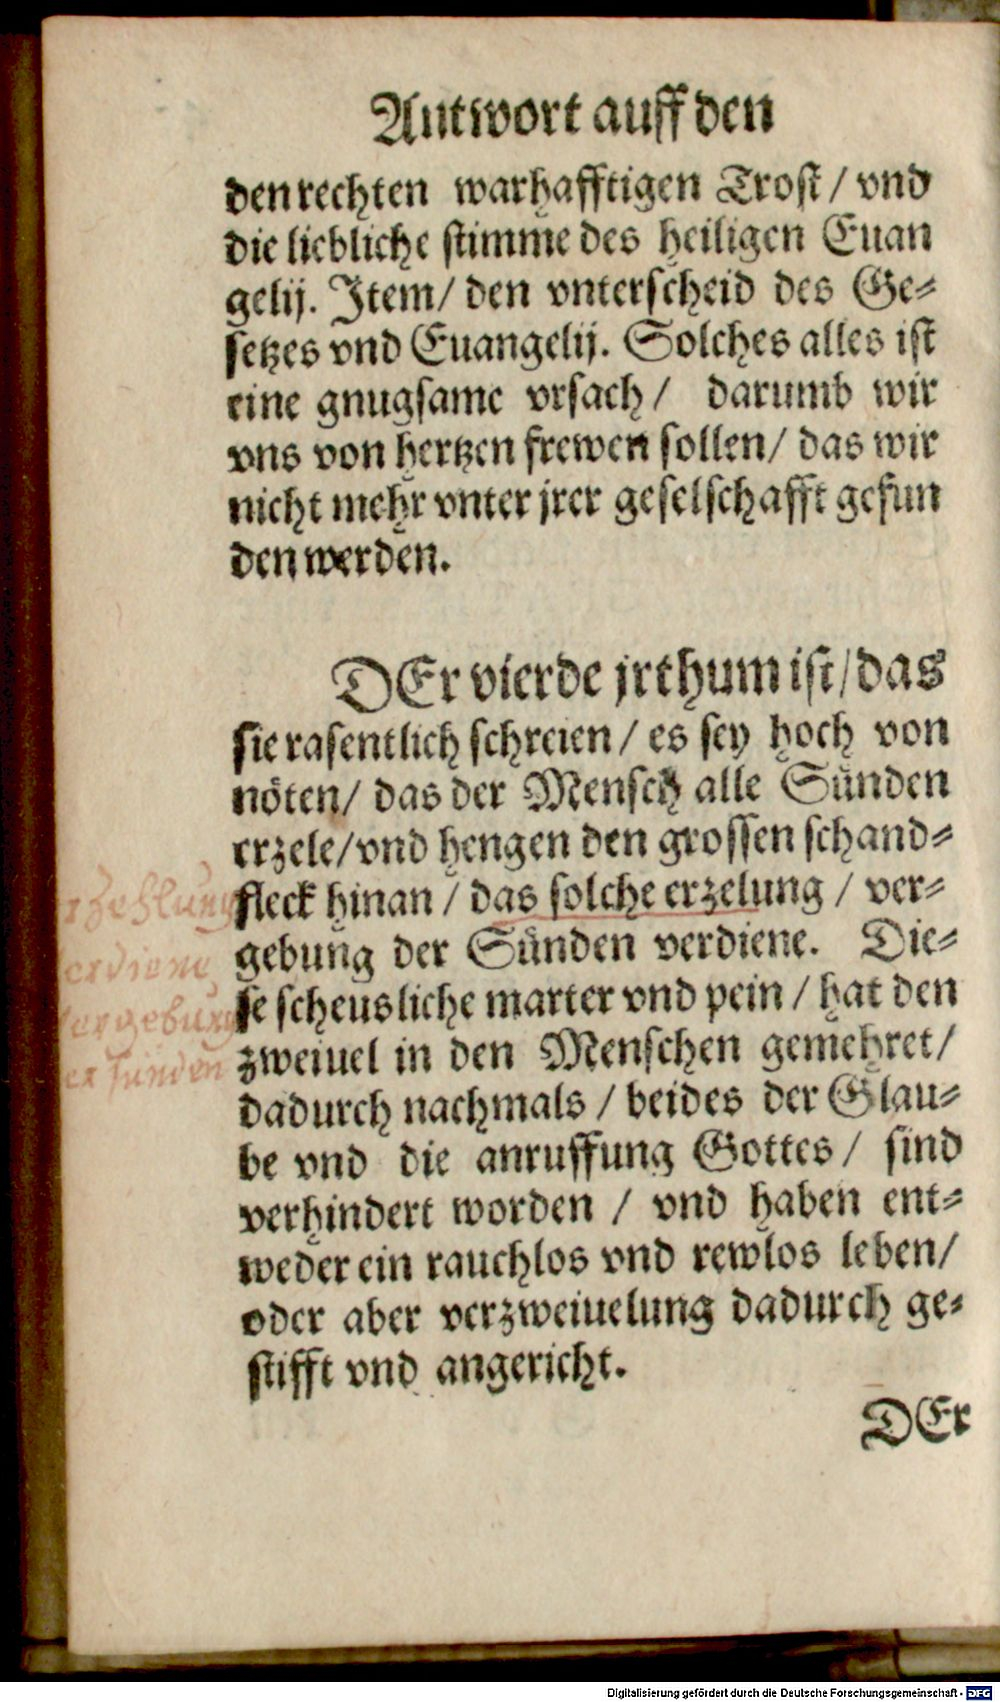 Antwort auff den
den rechten warhafftigen Trost / vnd
die liebliche stimme des heiligen Euan
gelij. Item / den vnterscheid des Ge-
setzes vnd Euangelij. Solches alles ist
eine gnugsame vrsach / darumb wir
vns von hertzen frewen sollen / das wir
nicht mehr vnter jrer geselschafft gefun
den werden.
DEr vierde jrthum ist / das
sie rasentlich schreien / es sey hoch von
nöten / das der Mensch alle Sünden
erzele / vnd hengen den grossen schand-
fleck hinan / das solche erzelung / ver-
gebung der Sünden verdiene. Die-
se scheusliche marter vnd pein / hat den
zweiuel in den Menschen gemehret /
dadurch nachmals / beides der Glau-
be vnd die anruffung Gottes / sind
verhindert worden / vnd haben ent-
weder ein rauchlos vnd rewlos leben /
oder aber verzweiuelung dadurch ge-
stifft vnd angericht.
DEr
rzehlung
erdiene
ergebung
er sünden
Digitalisierung gefördert durch die Deutsche Forschungsgemeinschaft - DFG